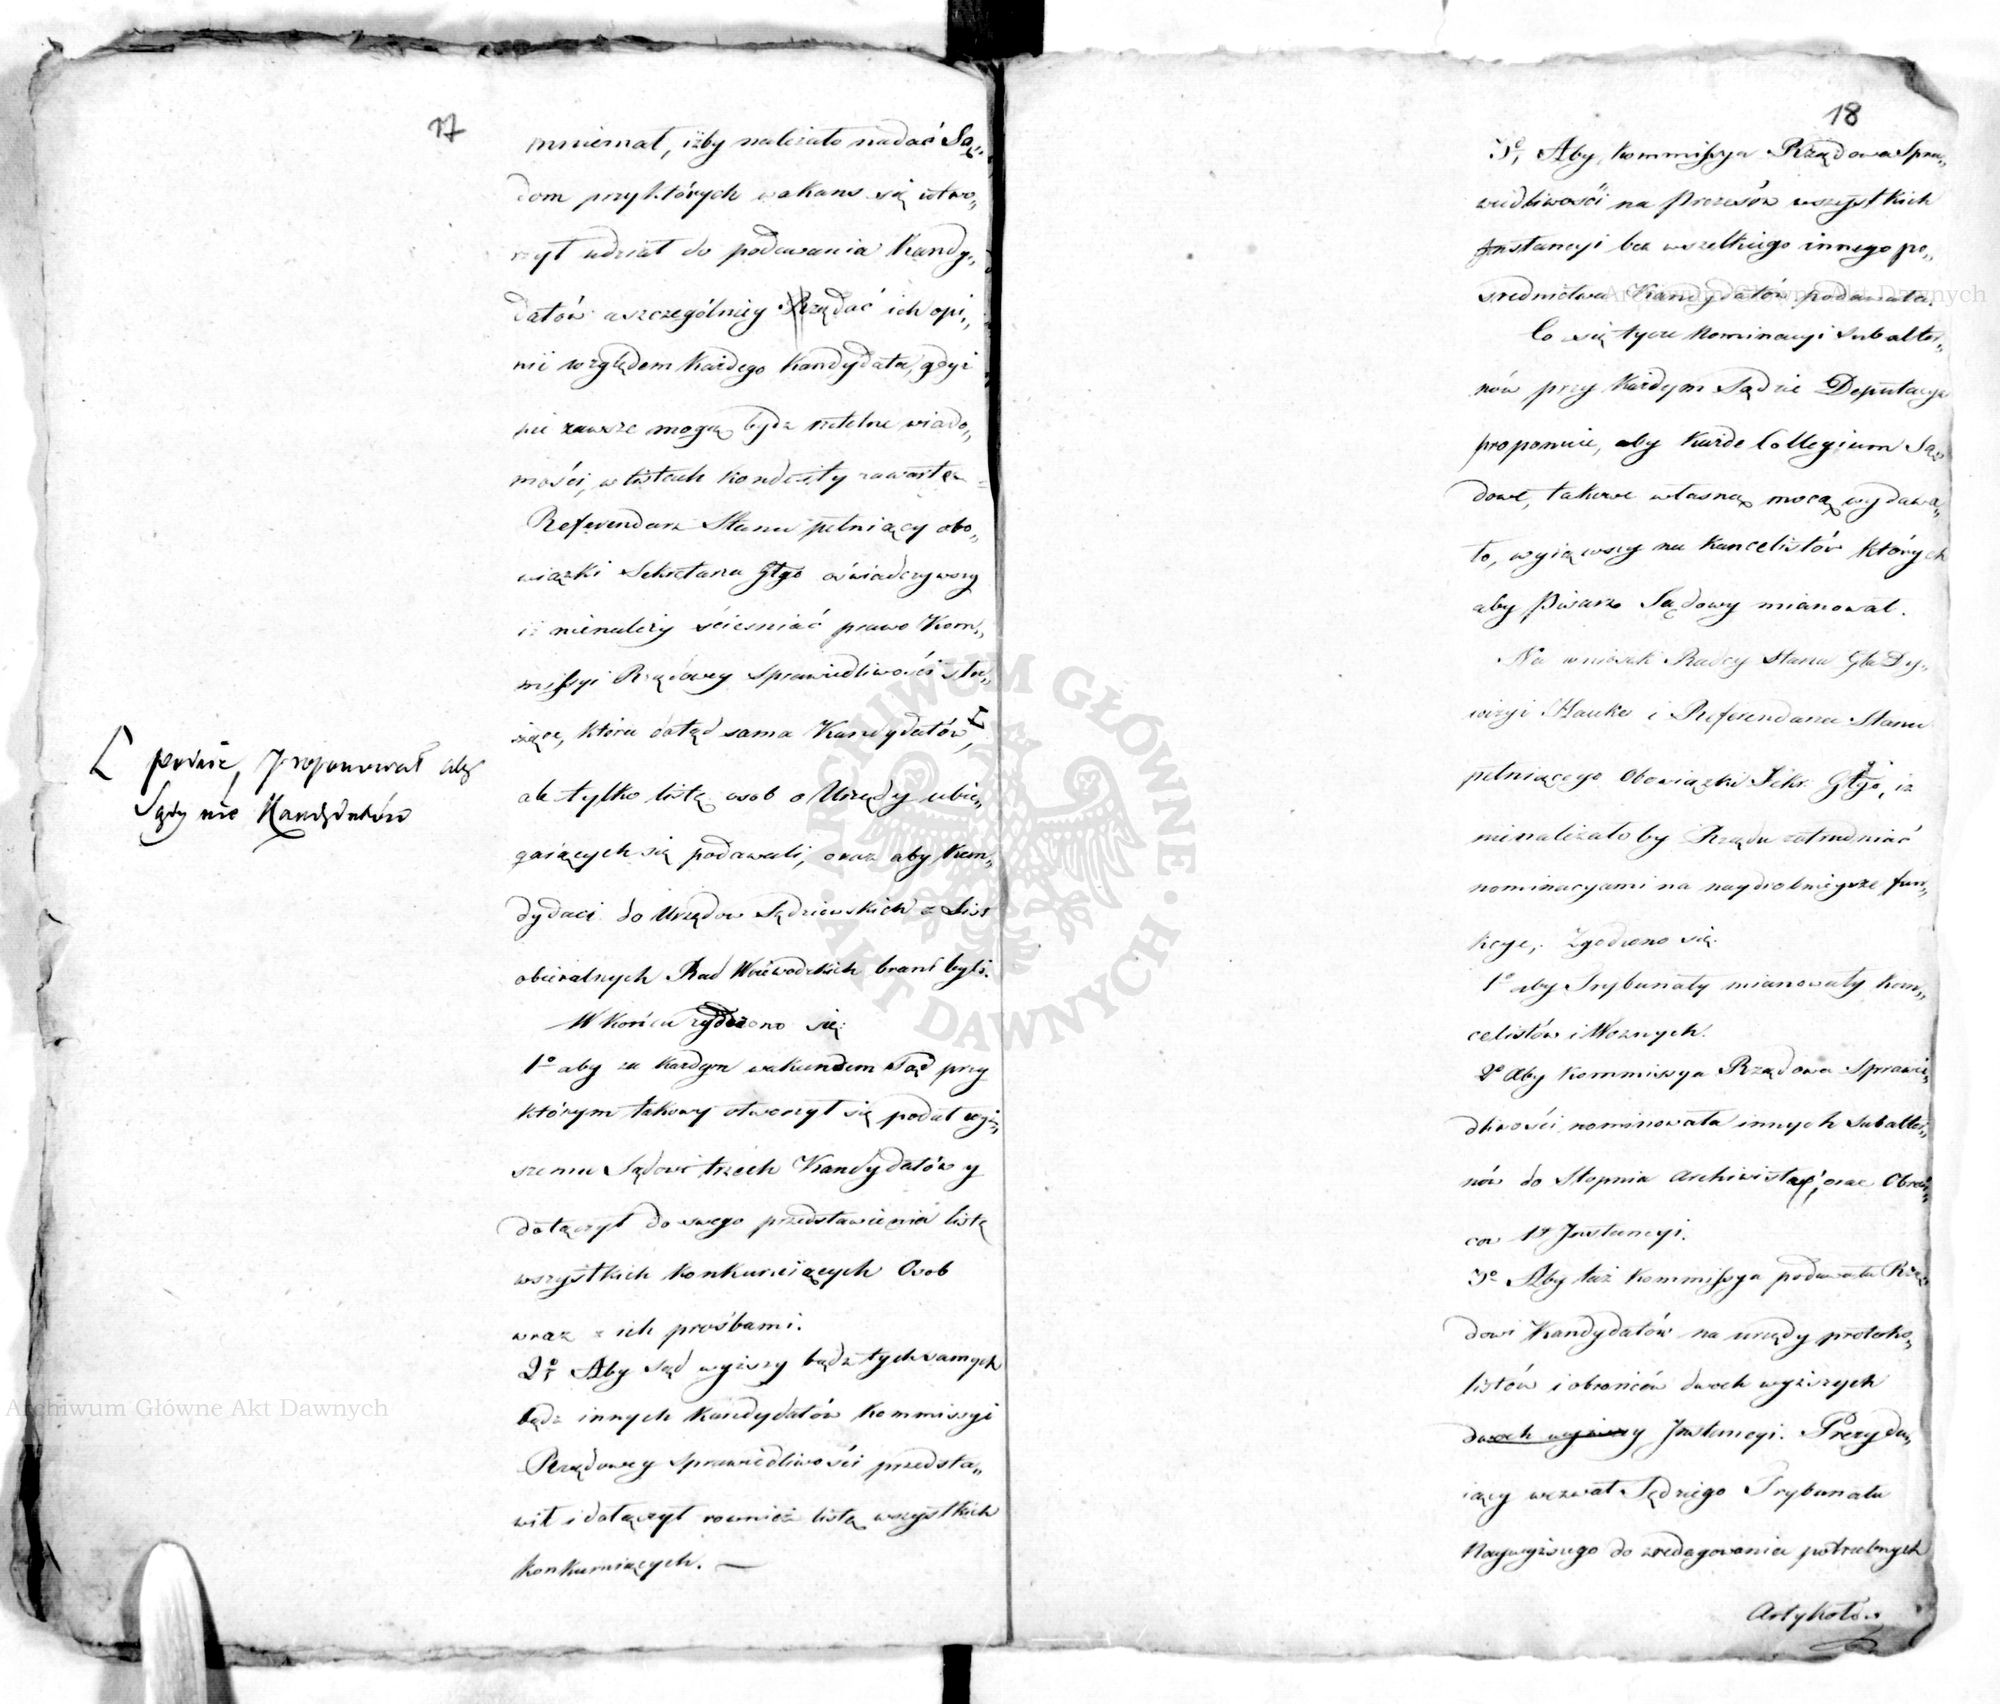 17
mniemał, iżby należało nadać Są„
dom przy których wakans się utwo„
rzył udział do podawania Kandy„
datów a szczególniey żądać ich opi„
nii względem każdego Kandydata, gdyż
nie zawsze mogą bydź rzetelne wiado„
mości, w listach konduity zawarte.
Referendarz Stanu pełniący obo„
wiązki Sekretarza Głgo oświadczywszy
iż nienależy ścieśniać prawo Kom„
missyi Rządowey Sprawiedliwości słu„
żące, która dotąd sama Kandydatów
[ podaie, proponował aby
Sądy nie Kandydatów
ale tylko listę osob o Urzędy ubie„
gaiących się podawali, oraz aby Kan„
dydaci do Urzędów Sędziowskich z List
obieralnych Rad Woiewodzkich brani byli.
W końcu zgodzono się:
1o aby za każdym wakansem Sąd przy
którym takowy otworzył się podał wyż„
szemu Sądowi trzech Kandydatów y
dołączył do swego przedstawienia listę
wszystkich konkuruiących Osob
wraz z ich prośbami.
2o, Aby Sąd wyższy bądź tychsamych
bądź innych Kandydatów Kommissyi
Rządowey Sprawiedliwości przedsta„
wił i dołączył rownież listę wszystkich
konkuruiących. —
18
3o, Aby Kommissya Rządowa Spra„
wiedliwości na Prezesów wszystkich
Instancyi bez wszelkiego innego po„
srednictwa Kandydatów podawała.
Co się tycze Nominacyi Subalter„
nów przy każdym Sądzie Deputacya
proponuie, aby każde Collegium Są„
dowe, takowe własną mocą wydawa„
ło, wyiąwszy na Kancelistów których
aby Pisarz Sądowy mianował.
Na wniosek Radcy Stanu Gła Dy„
wizyi Hauke i Referendarza Stanu
pełniącego Obowiązki Sekr. Głgo, iż
nienależało by Rządu zatrudniać
nominacyami na naydrobnieysze fun„
kcye, zgodzono się.
1o aby Trybunały mianowały Kan„
celistów i Woznych.
2o Aby Kommissya Rządowa Sprawie„
dliwości nominowała innych Subalter„
nów do Stopnia Archiwisty, oraz Obroń„
cow 1y Instancyi.
3o Aby taż Kommissya podawała Rzą„
dowi Kandydatów na urzędy protoko„
listów i obrońców dwoch wyższych
dwoch wyższy Instancyi. Prezydu„
iący wezwał Sędziego Trybunału
Naywyższego do zredagowania potrzebnych
Artykułów
Archiwum Główne Akt Dawnych
Archiwum Główne Akt Dawnych
ARCHIWUM GŁÓWNE · AKT DAWNYCH ·